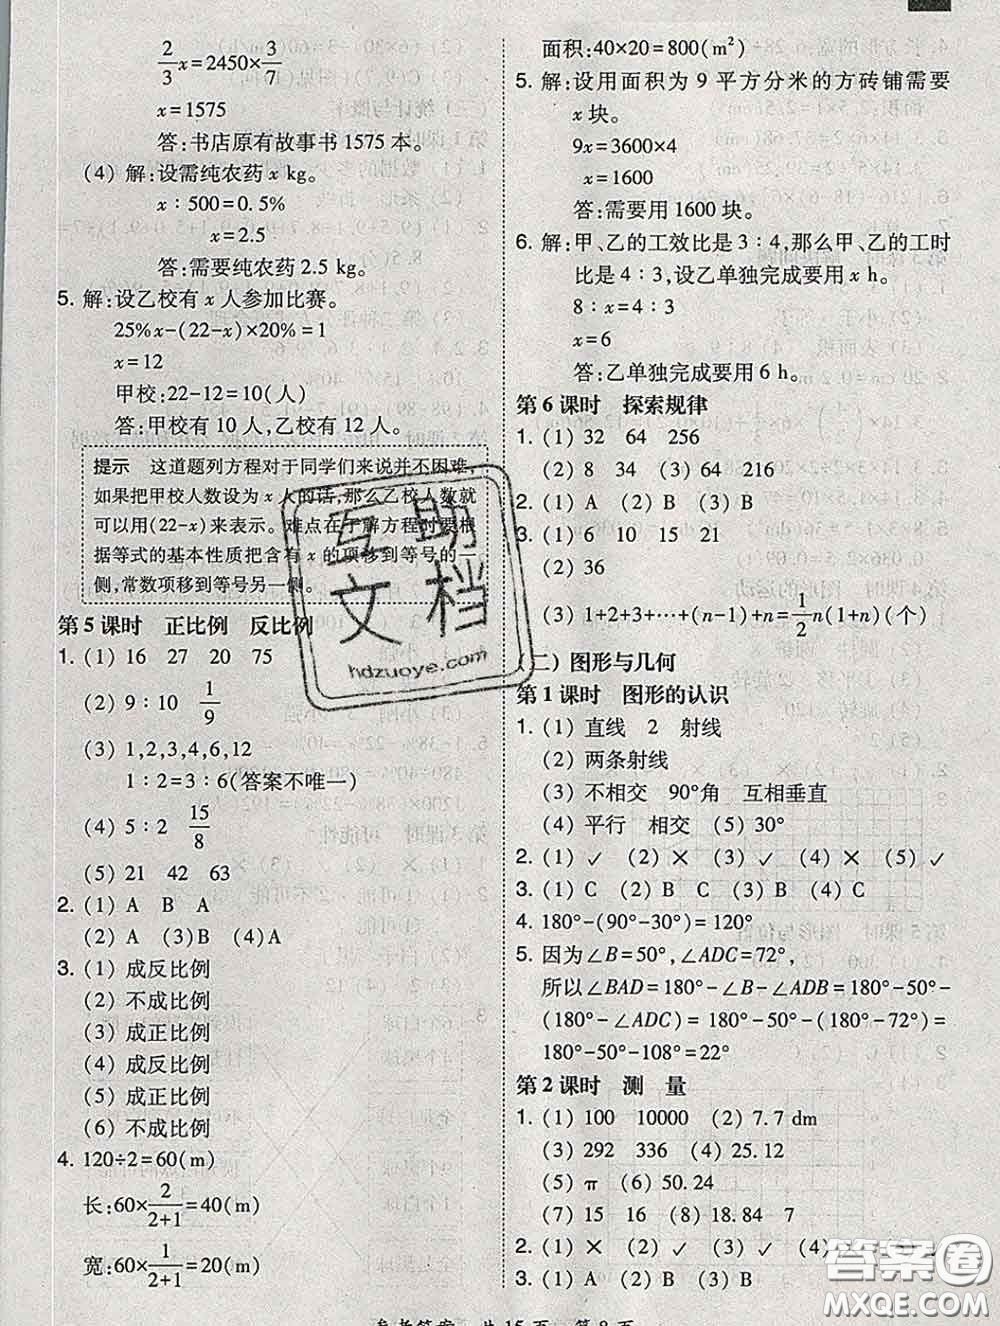 2/3 x=2450×3/7
x=1575
答:书店原有故事书 1575 本。
(4) 解:设需纯农药 x kg。
x∶500=0.5%
x=2.5
答:需要纯农药 2.5 kg。
5. 解:设乙校有 x 人参加比赛。
25%x-(22-x)×20%=1
x=12
甲校:22-12=10(人)
答:甲校有 10 人,乙校有 12 人。
提示 这道题列方程对于同学们来说并不困难,
如果把甲校人数设为 x 人的话,那么乙校人数就
可以用(22-x)来表示。难点在于解方程时要根
据等式的基本性质把含有 x 的项移到等号的一
侧,常数项移到等号另一侧。
第 5 课时 正比例 反比例
1. (1) 16 27 20 75
(2) 9∶10 1/9
(3) 1,2,3,4,6,12
1∶2=3∶6(答案不唯一)
(4) 5∶2 15/8
(5) 21 42 63
2. (1) A B A
(2) A (3)B (4)A
3. (1) 成反比例
(2) 不成比例
(3) 成正比例
(4) 成反比例
(5) 成正比例
(6) 不成比例
4. 120÷2=60(m)
长:60×2/(2+1)=40(m)
宽:60×1/(2+1)=20(m)
面积:40×20=800(m²)
5. 解:设用面积为 9 平方分米的方砖铺需要
x 块。
9x=3600×4
x=1600
答:需要用 1600 块。
6. 解:甲、乙的工效比是 3∶4,那么甲、乙的工时
比是 4∶3,设乙单独完成要用 x h。
8∶x=4∶3
x=6
答:乙单独完成要用 6 h。
第 6 课时 探索规律
1. (1) 32 64 256
(2) 8 34 (3) 64 216
2. (1) A (2) B (3) B
3. (1) 6 10 15 21
(2) 36
(3) 1+2+3+…+(n-1)+n=1/2 n(1+n)(个)
(二) 图形与几何
第 1 课时 图形的认识
1. (1) 直线 2 射线
(2) 两条射线
(3) 不相交 90°角 互相垂直
(4) 平行 相交 (5) 30°
2. (1) ✓ (2) × (3) ✓ (4) × (5) ✓
3. (1) C (2) B (3) C (4) B
4. 180°-(90°-30°)=120°
5. 因为∠B=50°,∠ADC=72°,
所以∠BAD=180°-∠B-∠ADB=180°-50°-
(180°-∠ADC)=180°-50°-(180°-72°)=
180°-50°-108°=22°
第 2 课时 测 量
1. (1) 100 10000 (2) 7.7 dm
(3) 292 336 (4) 25.12
(5) π (6) 50.24
(7) 15 16 (8) 18.84 7
2. (1) × (2) ✓ (3) ✓ (4) ×
3. (1) A (2) B (3) B
互助
文档
hdzuoye.com
答案圈
MXQE.COM
参考答案 共 15 页 第 8 页